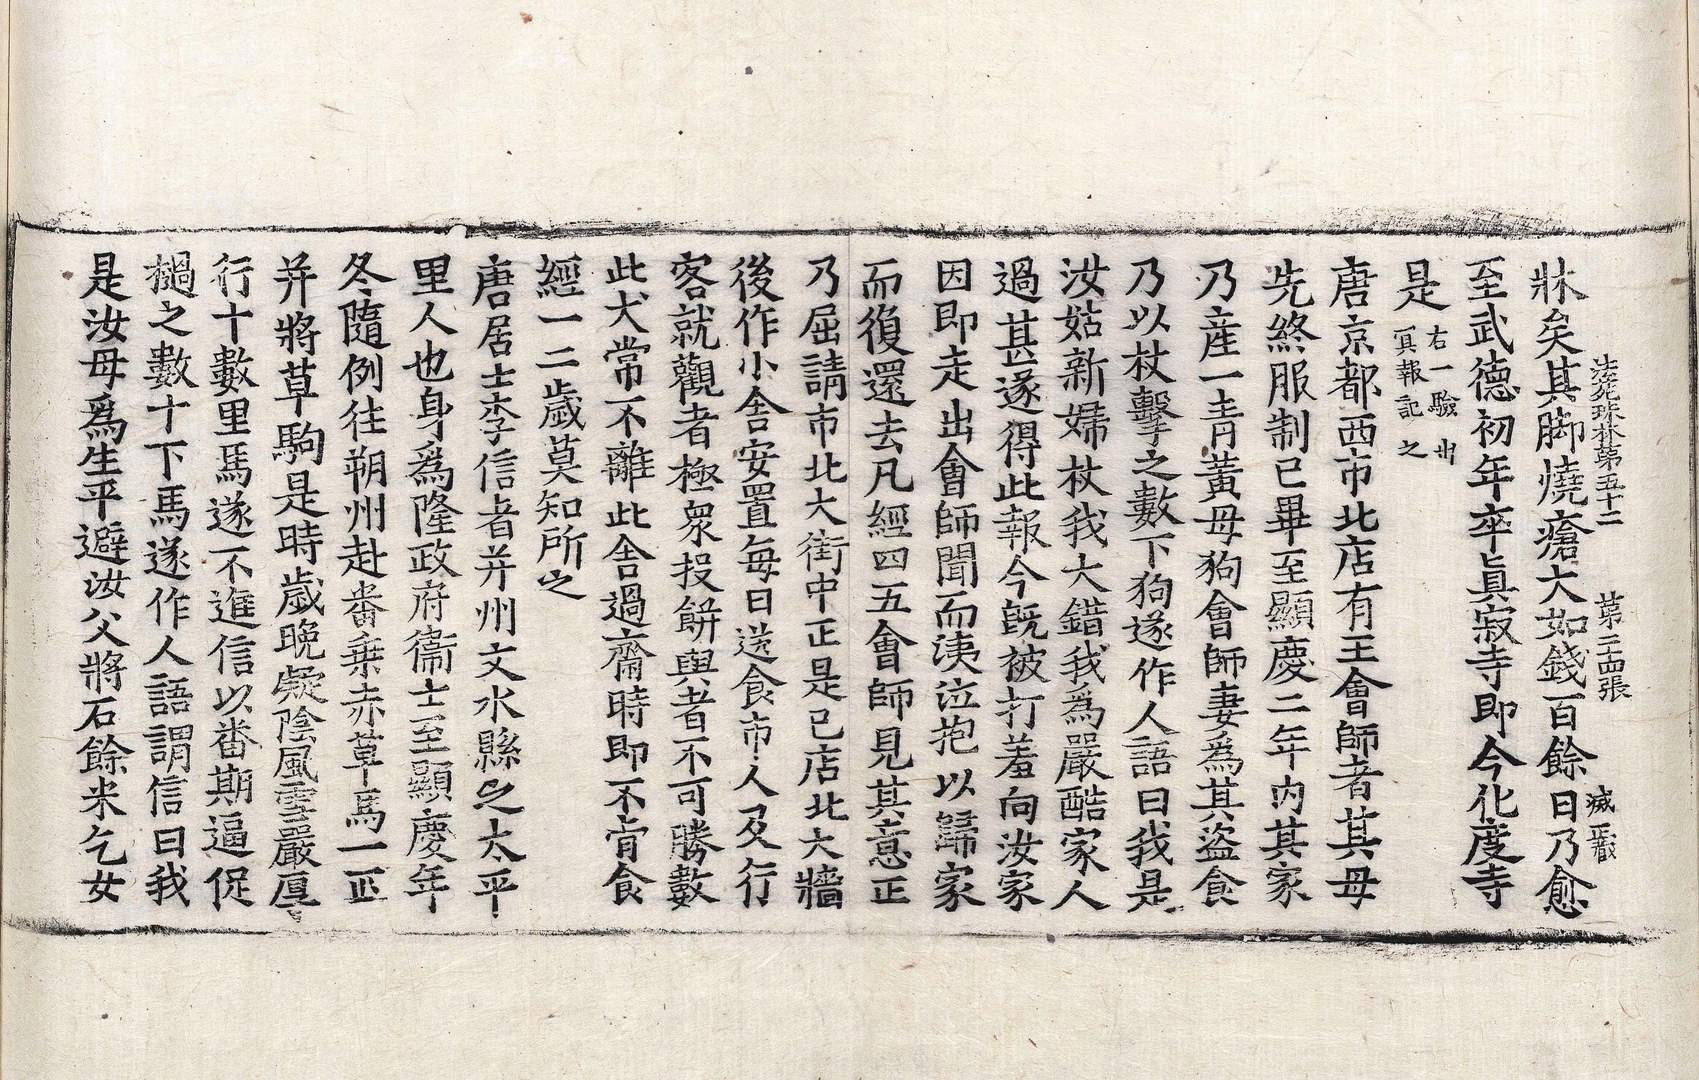 法苑珠林第五十二　第二十四張　滅嚴
牀矣其脚燒瘡大如錢百餘日乃愈
至武德初年卒真寂寺即今化度寺
是右一驗出
冥報記之
唐京都西市北店有王會師者其母
先終服制已畢至顯慶二年內其家
乃產一青黃母狗會師妻爲其盜食
乃以杖擊之數下狗遂作人語曰我是
汝姑新婦杖我大錯我爲嚴酷家人
過甚遂得此報今既被打羞向汝家
因即走出會師聞而洟泣抱以歸家
而復還去凡經四五會師見其意正
乃屈請市北大街中正是己店北大牆
後作小舍安置每日送食市人及行
客就觀者極衆投餅與者不可勝數
此犬常不離此舍過齋時即不肯食
經一二歲莫知所之
唐居士李信者并州文水縣之太平
里人也身爲隆政府衛士至顯慶年
冬隨例往朔州赴番乗赤草馬一疋
并將草駒是時歲晚凝陰風雪嚴厚
行十數里馬遂不進信以番期逼促
撾之數十下馬遂作人語謂信曰我
是汝母爲生平避汝父將石餘米乞女